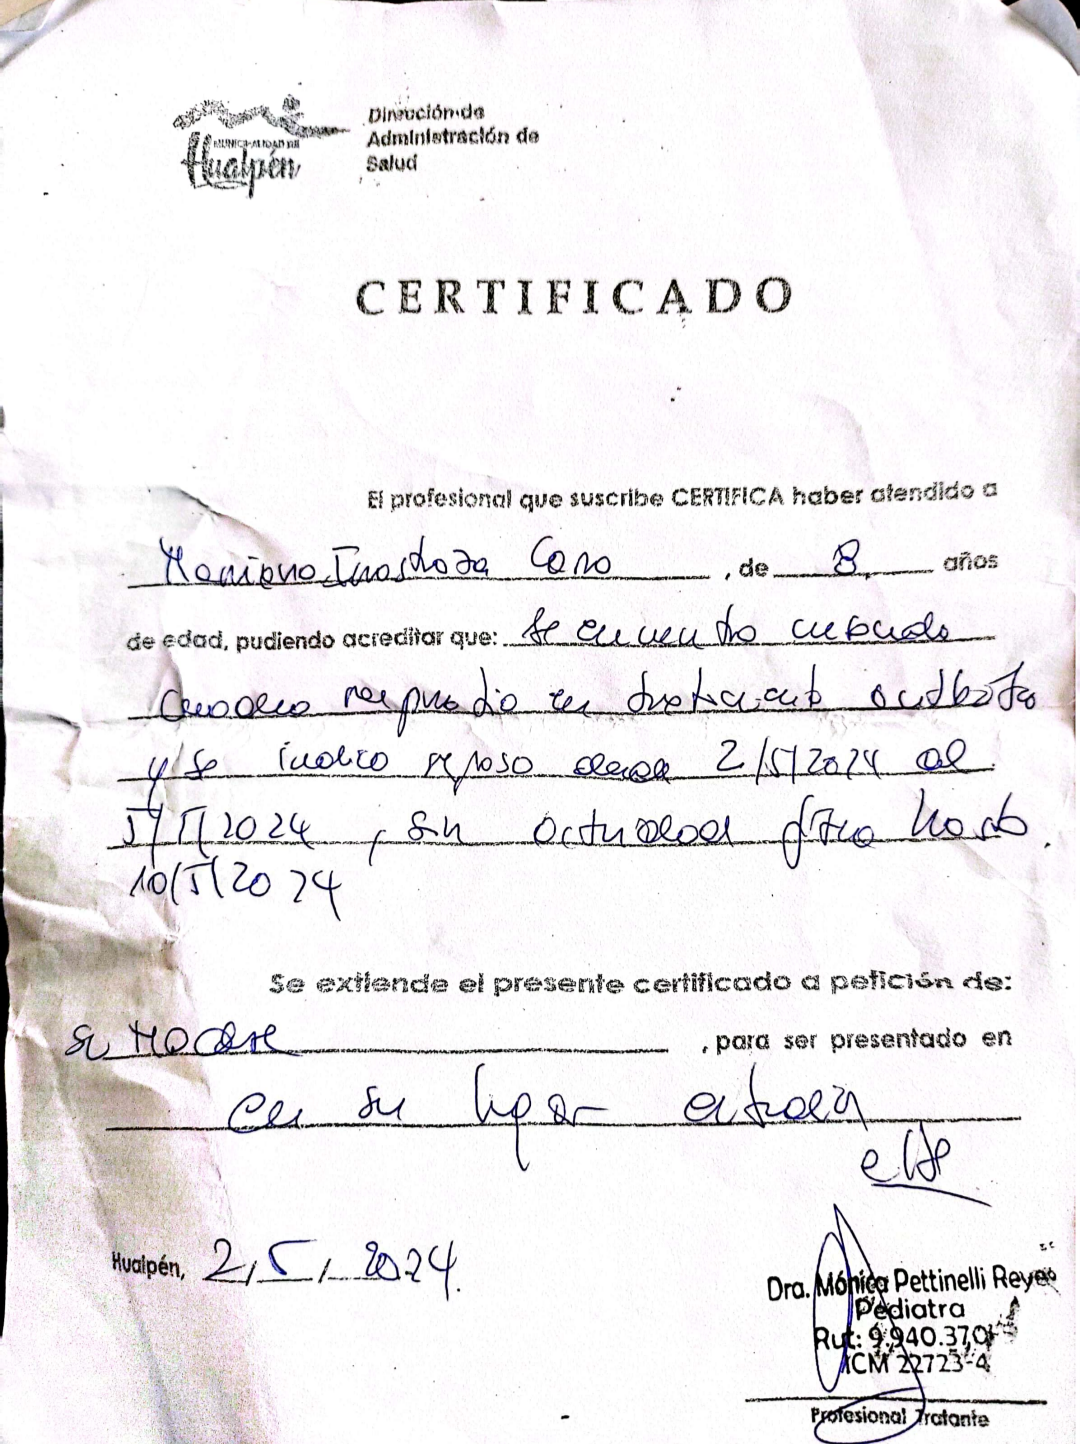 MUNICIPALIDAD DE
Hualpén
Dirección de
Administración de
Salud
CERTIFICADO
El profesional que suscribe CERTIFICA haber atendido a
Inostroza Caro, de 8 años
de edad, pudiendo acreditar que: se encuentra cursando
cuadro en tratamiento
y se indico reposo desde 2/5/2024 al
/5/2024, sin actividad física hasta.
10/5/2024
Se extiende el presente certificado a petición de:
su Madre, para ser presentado en
en su lugar
Hualpén, 2, 5, 2024.
Dra. Mónica Pettinelli Reyes
Pediatra
Rut: 9.940.370-
ICM 22723-4
Profesional Tratante